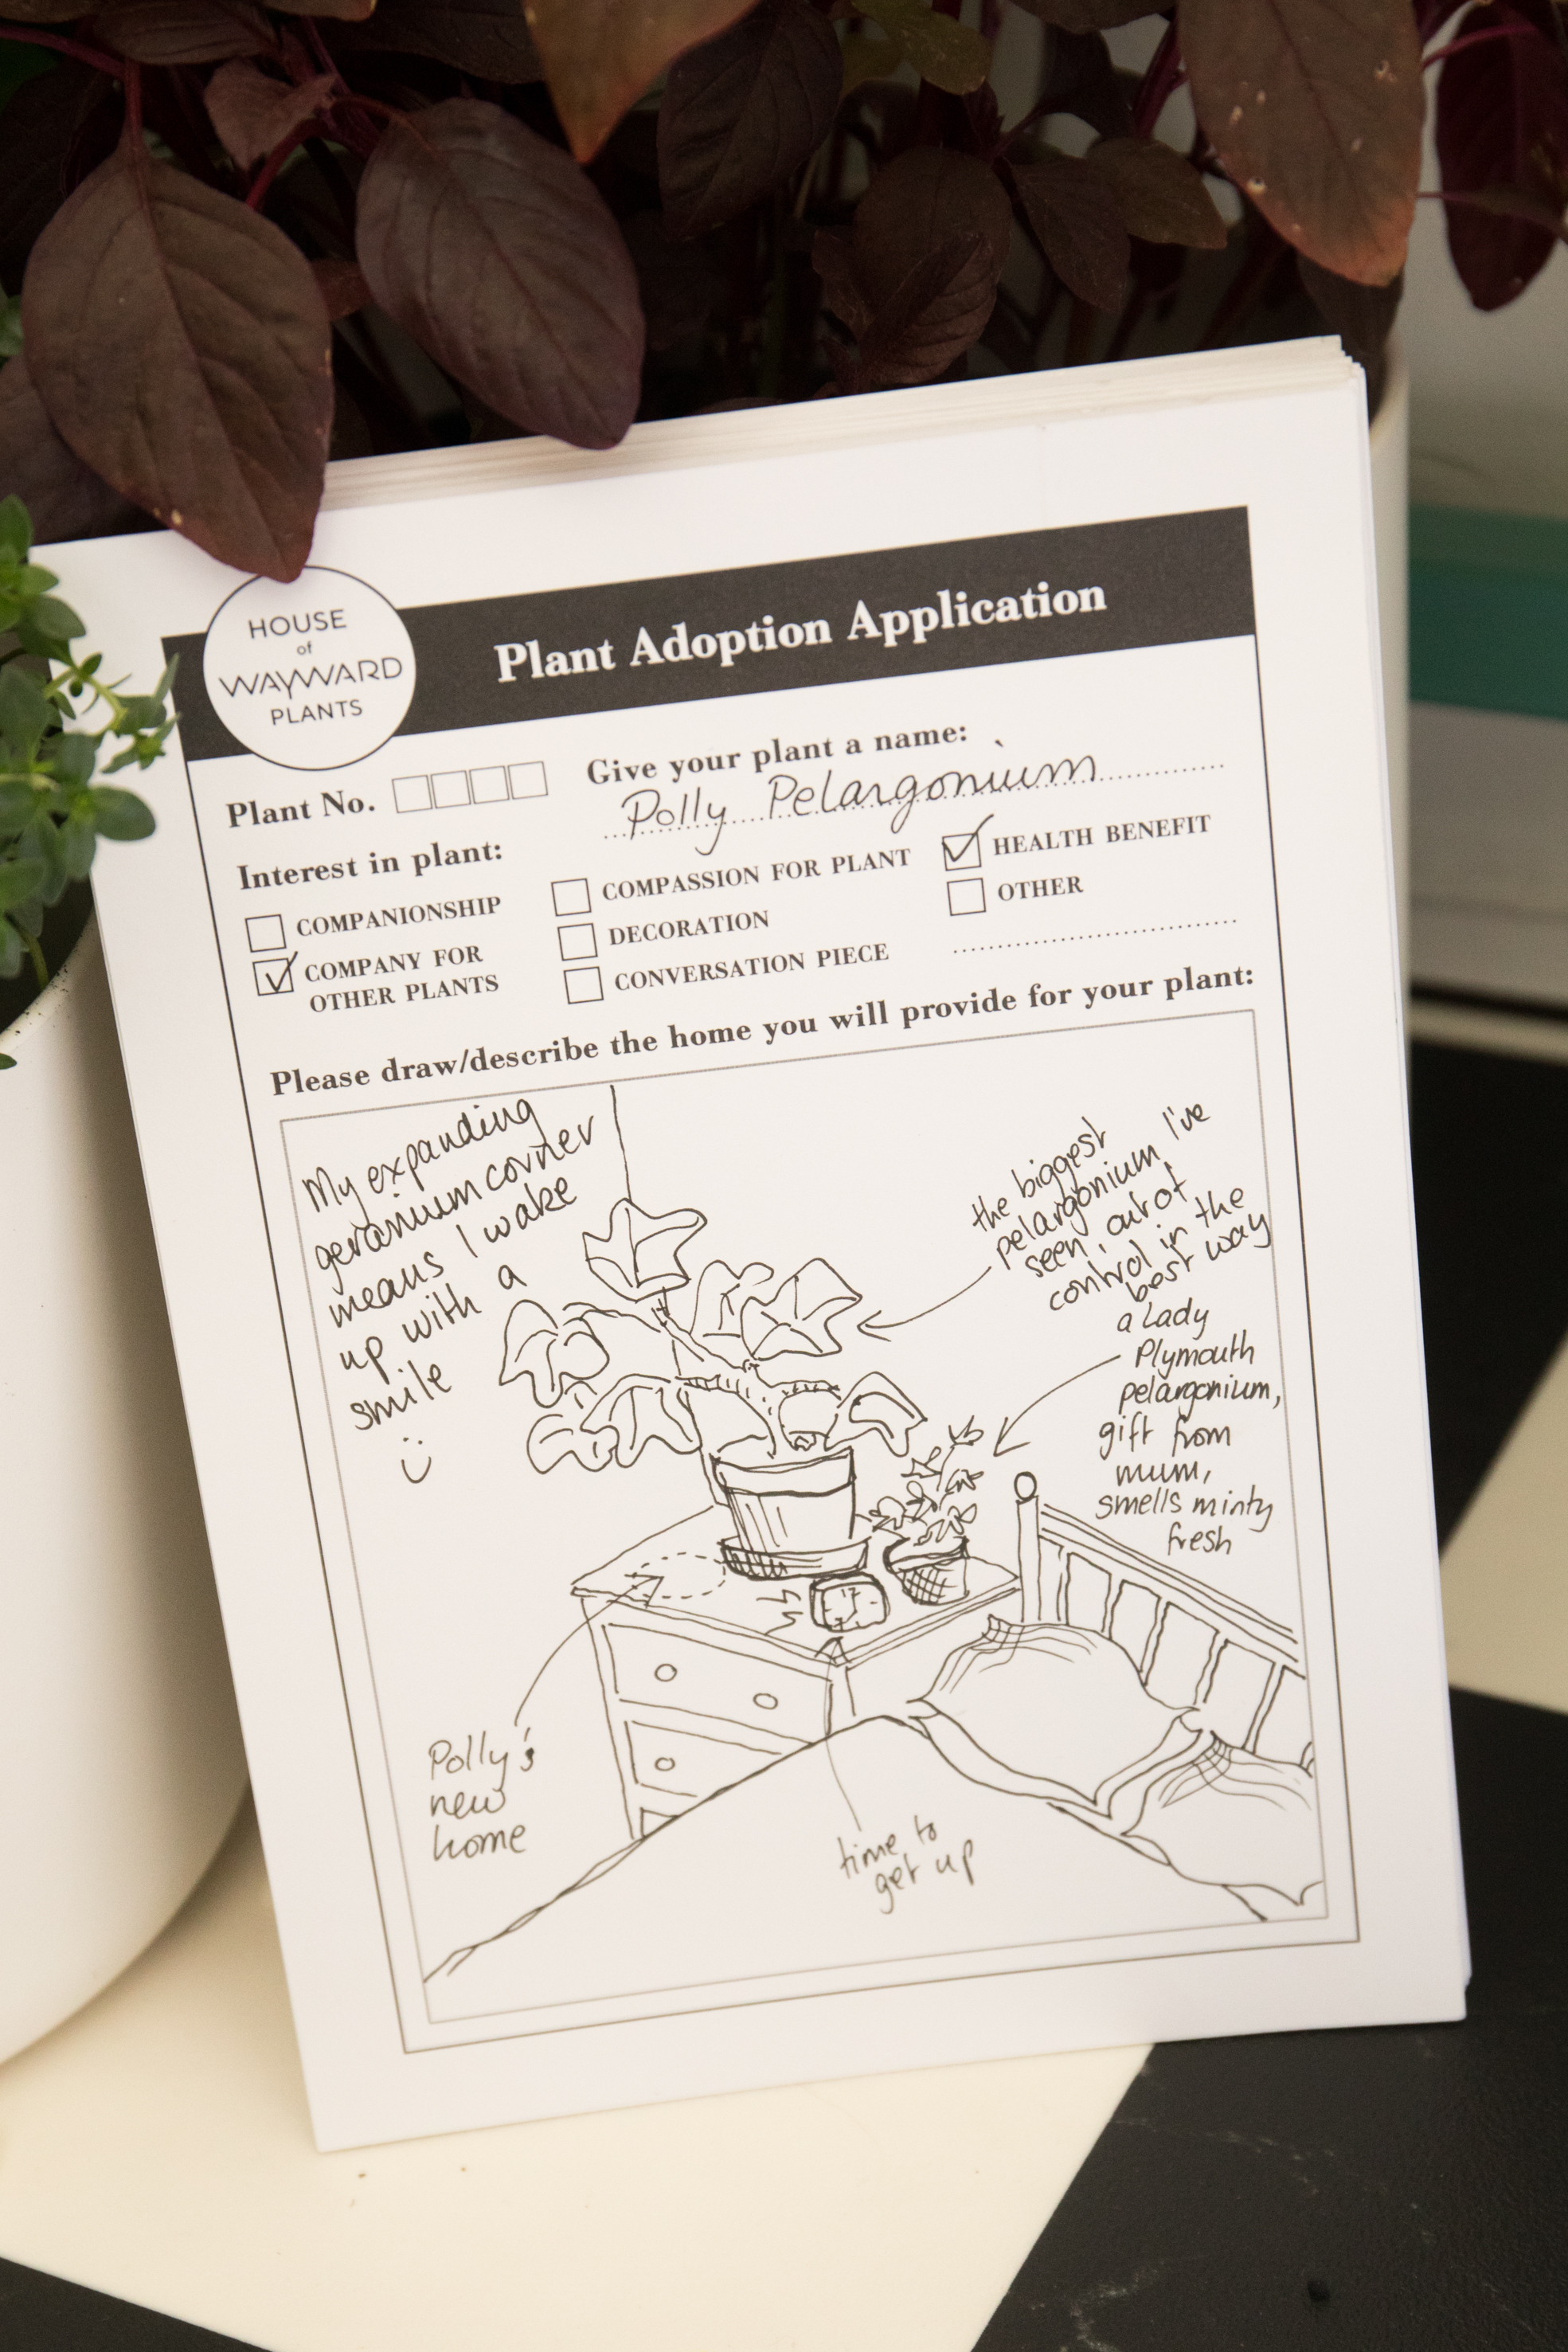 HOUSE
of
WAYWARD
PLANTS
Plant Adoption Application
Plant No.
Give your plant a name:
Polly Pelargonium
Interest in plant:
COMPANIONSHIP
COMPANY FOR
OTHER PLANTS
COMPASSION FOR PLANT
DECORATION
CONVERSATION PIECE
HEALTH BENEFIT
OTHER
Please draw/describe the home you will provide for your plant:
My expanding
geranium corner
means I wake
up with a
smile
the biggest
pelargonium I've
seen, out of
control in the
best way
a Lady
Plymouth
pelargonium,
gift from
mum,
smells minty
fresh
Polly's
new
home
time to
get up